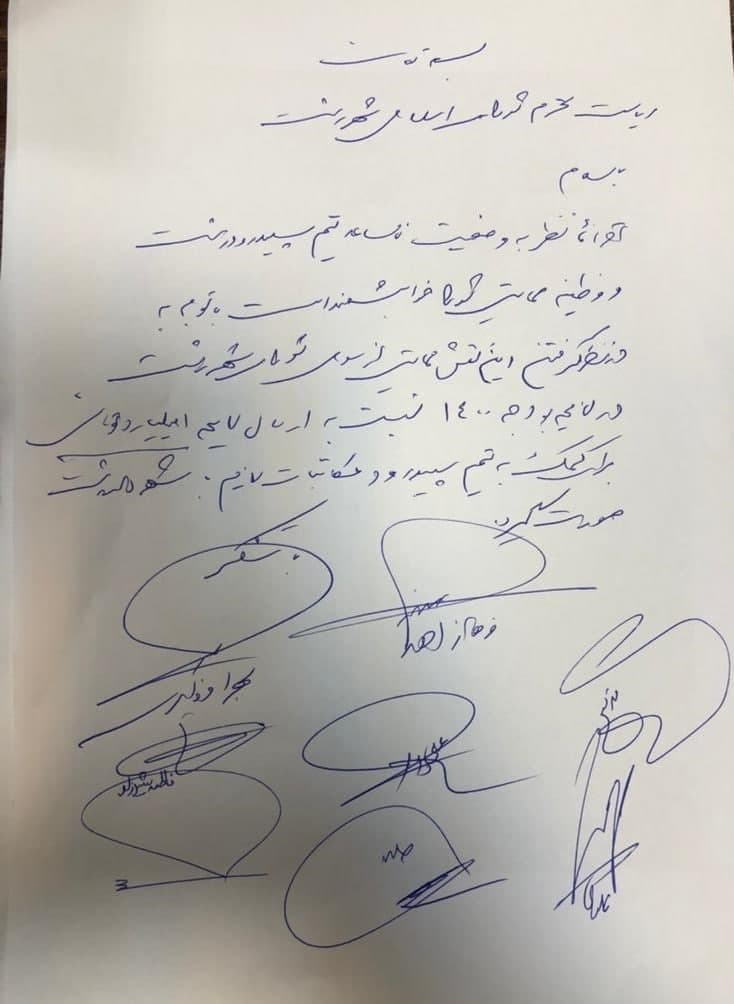 بسمه تعالی
ریاست محترم شورای اسلامی شهر رشت
با سلام
احتراماً نظر به وضعیت نامساعد تیم سپیدرود رشت
و وظیفه حمایتی شورا خواهشمند است با توجه به
در نظر گرفتن این نقش حمایتی از سوی شورای شهر رشت
در لایحه بودجه ۱۴۰۰ نسبت به ارسال لایحه ۱ میلیارد تومانی
برای کمک به تیم سپیدرود مکاتبات لازم با شهرداری رشت
صورت گیرد.
با تشکر
فاطمه شیرزاد